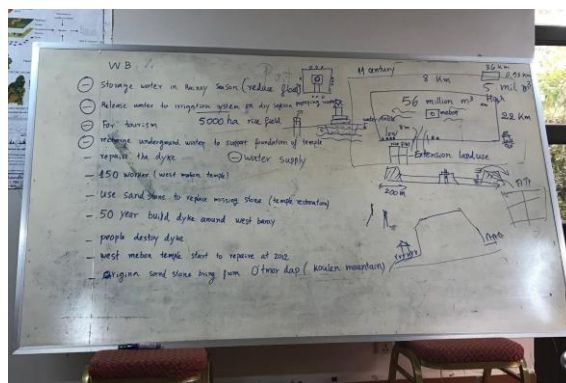 W.B.
Storage water in Rainy Season (reduce flood)
Release water to irrigation system for dry season pumping water
For tourism 5000 ha rice field
recharge underground water to support foundation of temple
- repaire the dyke
water supply
- 450 worker (west mebon temple)
- use sand stone to replace missing stone (temple restoration)
- 50 year build dyke around west baray
- people destroy dyke
- west mebon temple start to repaire at 2012
- Origin sand stone bring from O'tmor dap (koulen mountain)
11 century
8 Km
56 million m³
mebon
Extension land use
200m
36 Km
5 mil m³
22 Km